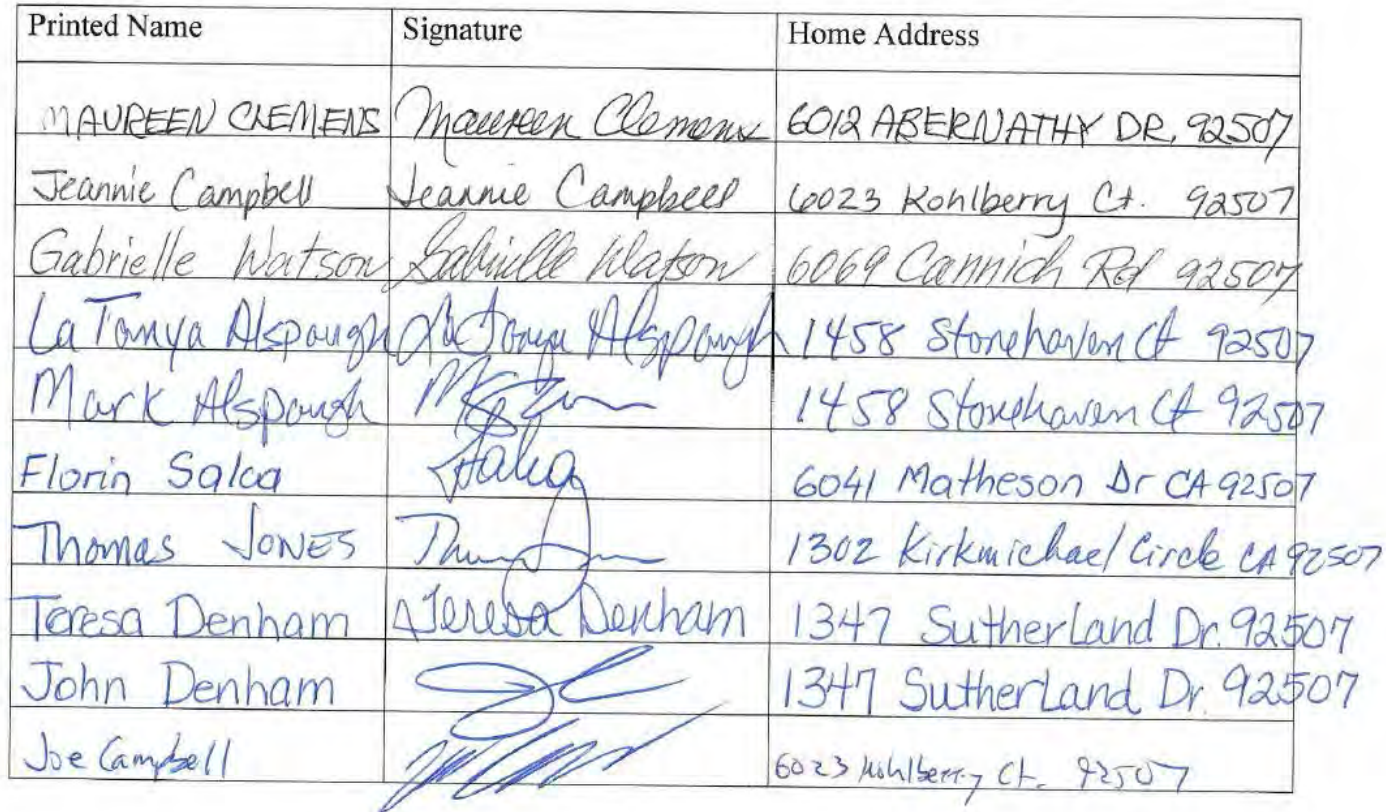 Printed Name Signature Home Address
MAUREEN CLEMENS Maureen Clemens 6012 ABERNATHY DR, 92507
Jeannie Campbell Jeannie Campbell 6023 Kohlberry Ct. 92507
Gabrielle Watson Gabrielle Watson 6069 Cannich Rd 92507
La Tanya Alspaugh La Tanya Alspaugh 1458 Stonehaven Ct 92507
Mark Alspaugh 1458 Stonehaven Ct 92507
Florin Salca Salca 6041 Matheson Dr CA 92507
Thomas JONES 1302 Kirkmichael Circle CA 92507
Teresa Denham Teresa Denham 1347 Sutherland Dr. 92507
John Denham 1347 Sutherland Dr. 92507
Joe Campbell 6023 Kohlberry Ct. 92507